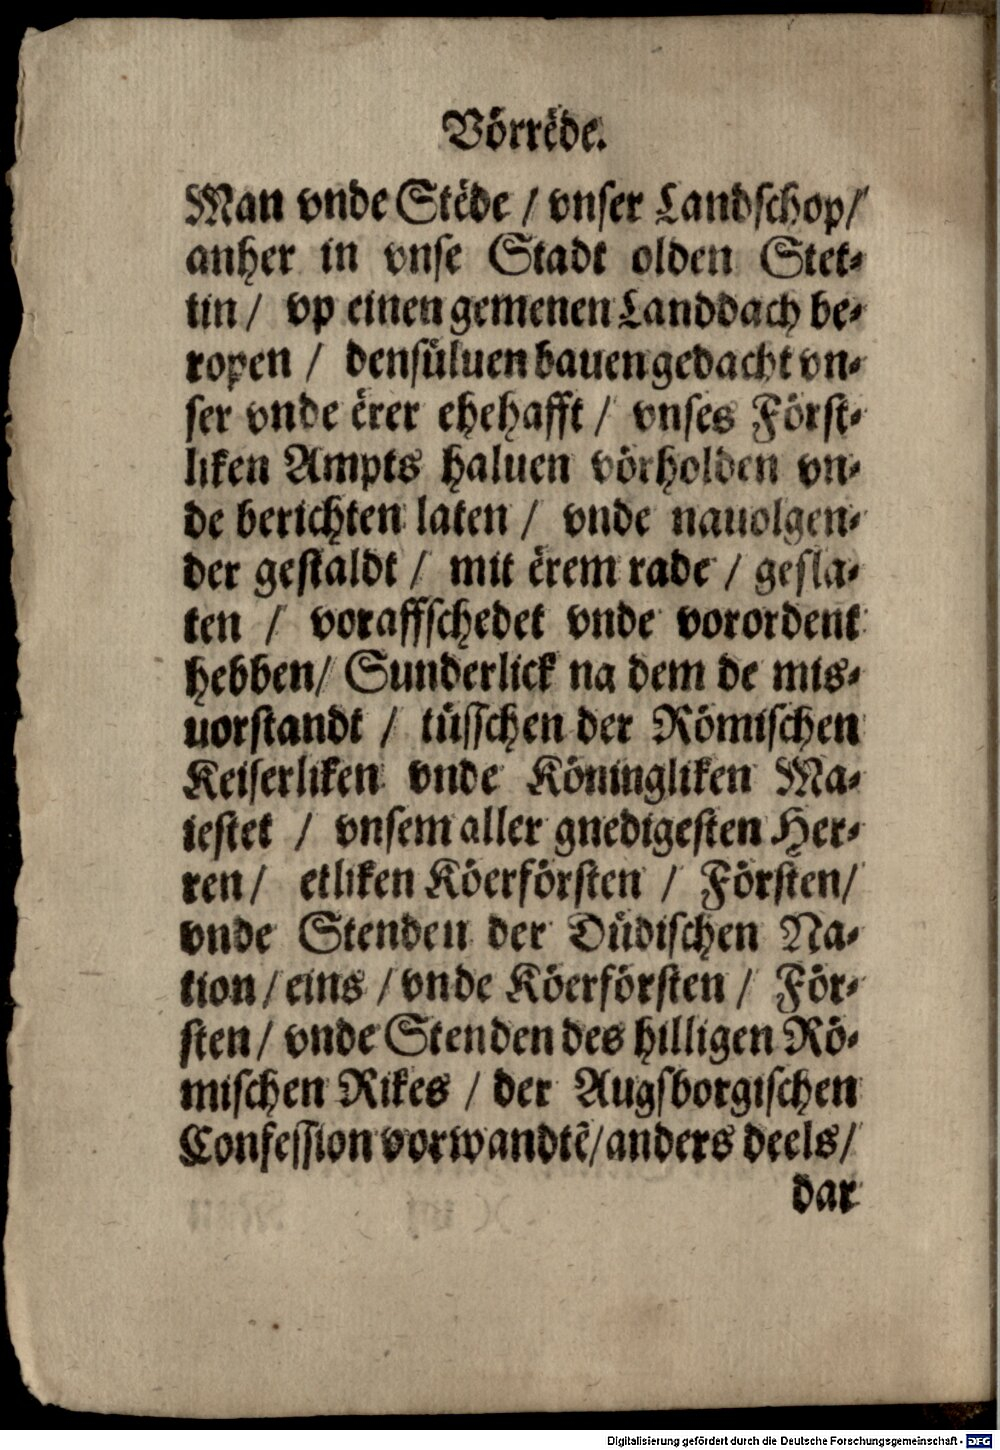 Vörrëde.
Man vnde Stëde / vnser Landschop/
anher in vnse Stadt olden Stet-
tin / vp einen gemenen Landdach be-
ropen / densüluen bauen gedacht vn-
ser vnde ërer ehehafft / vnses Först-
liken Ampts haluen vörholden vn-
de berichten laten / vnde nauolgen-
der gestaldt / mit ërem rade / gesla-
ten / voraffschedet vnde vorordent
hebben/ Sunderlick na dem de mis-
uorstandt / tüsschen der Römischen
Keiserliken vnde Köningliken Ma-
iestet / vnsem aller gnedigesten Her-
ren / etliken Köerförsten / Försten/
vnde Stenden der Düdischen Na-
tion / eins / vnde Köerförsten / För-
sten / vnde Stenden des hilligen Rö-
mischen Rikes / der Augsborgischen
Confession vorwandtē/anders deels/
dar
Digitalisierung gefördert durch die Deutsche Forschungsgemeinschaft - DFG